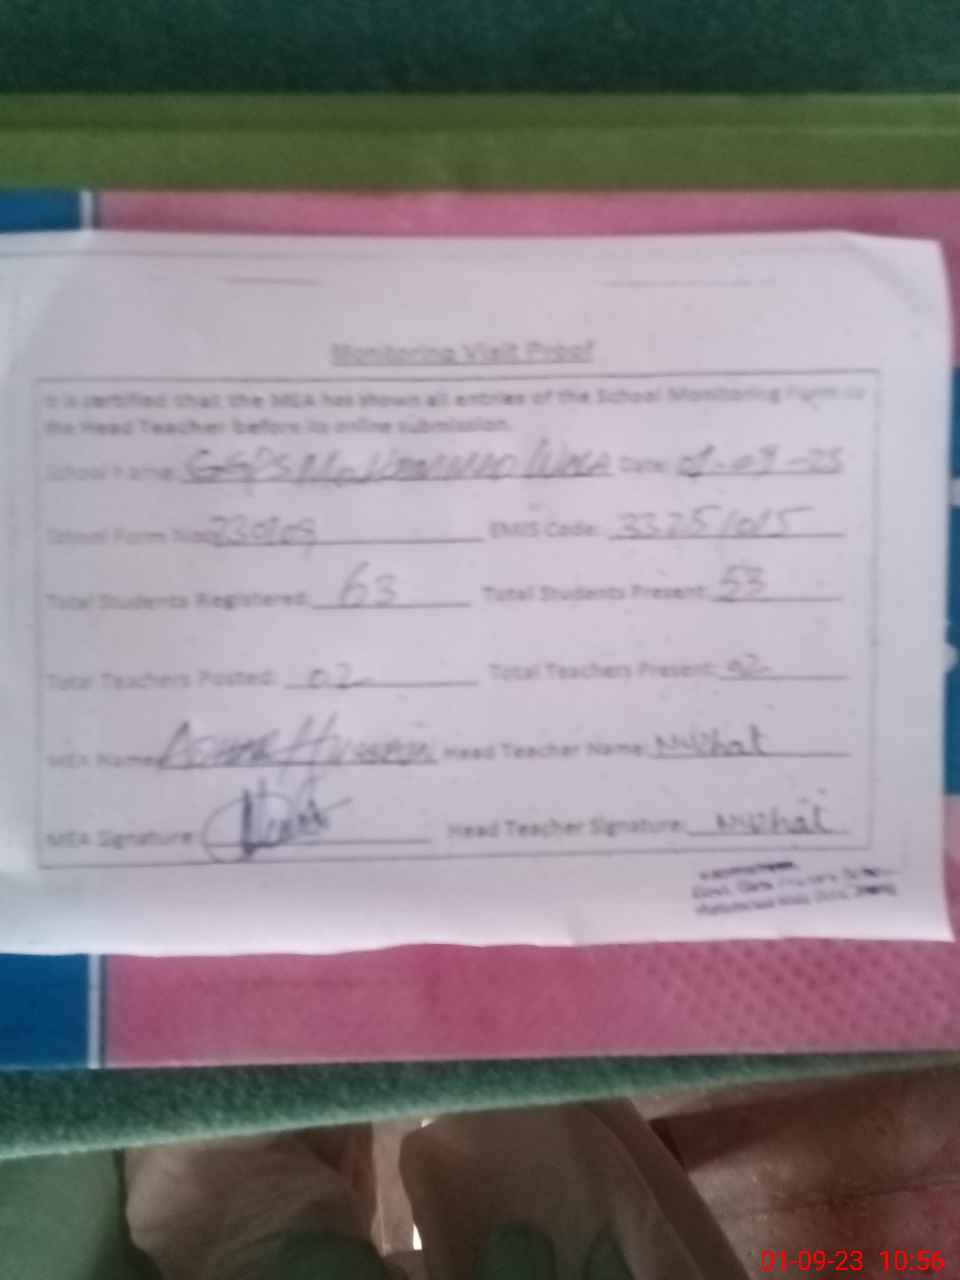 Monitoring Visit Proof
It is certified that the MEA has shown all entries of the School Monitoring Form to
the Head Teacher before its online submission.
School Name: GGPS Date: 01-09-23
School Form No: 230109 EMIS Code: 33251015
Total Students Registered: 63 Total Students Present: 53
Total Teachers Posted: 02 Total Teachers Present: 02
MEA Name: Hussain Head Teacher Name: Nuzhat
MEA Signature: Head Teacher Signature: Nuzhat
01-09-23 10:56